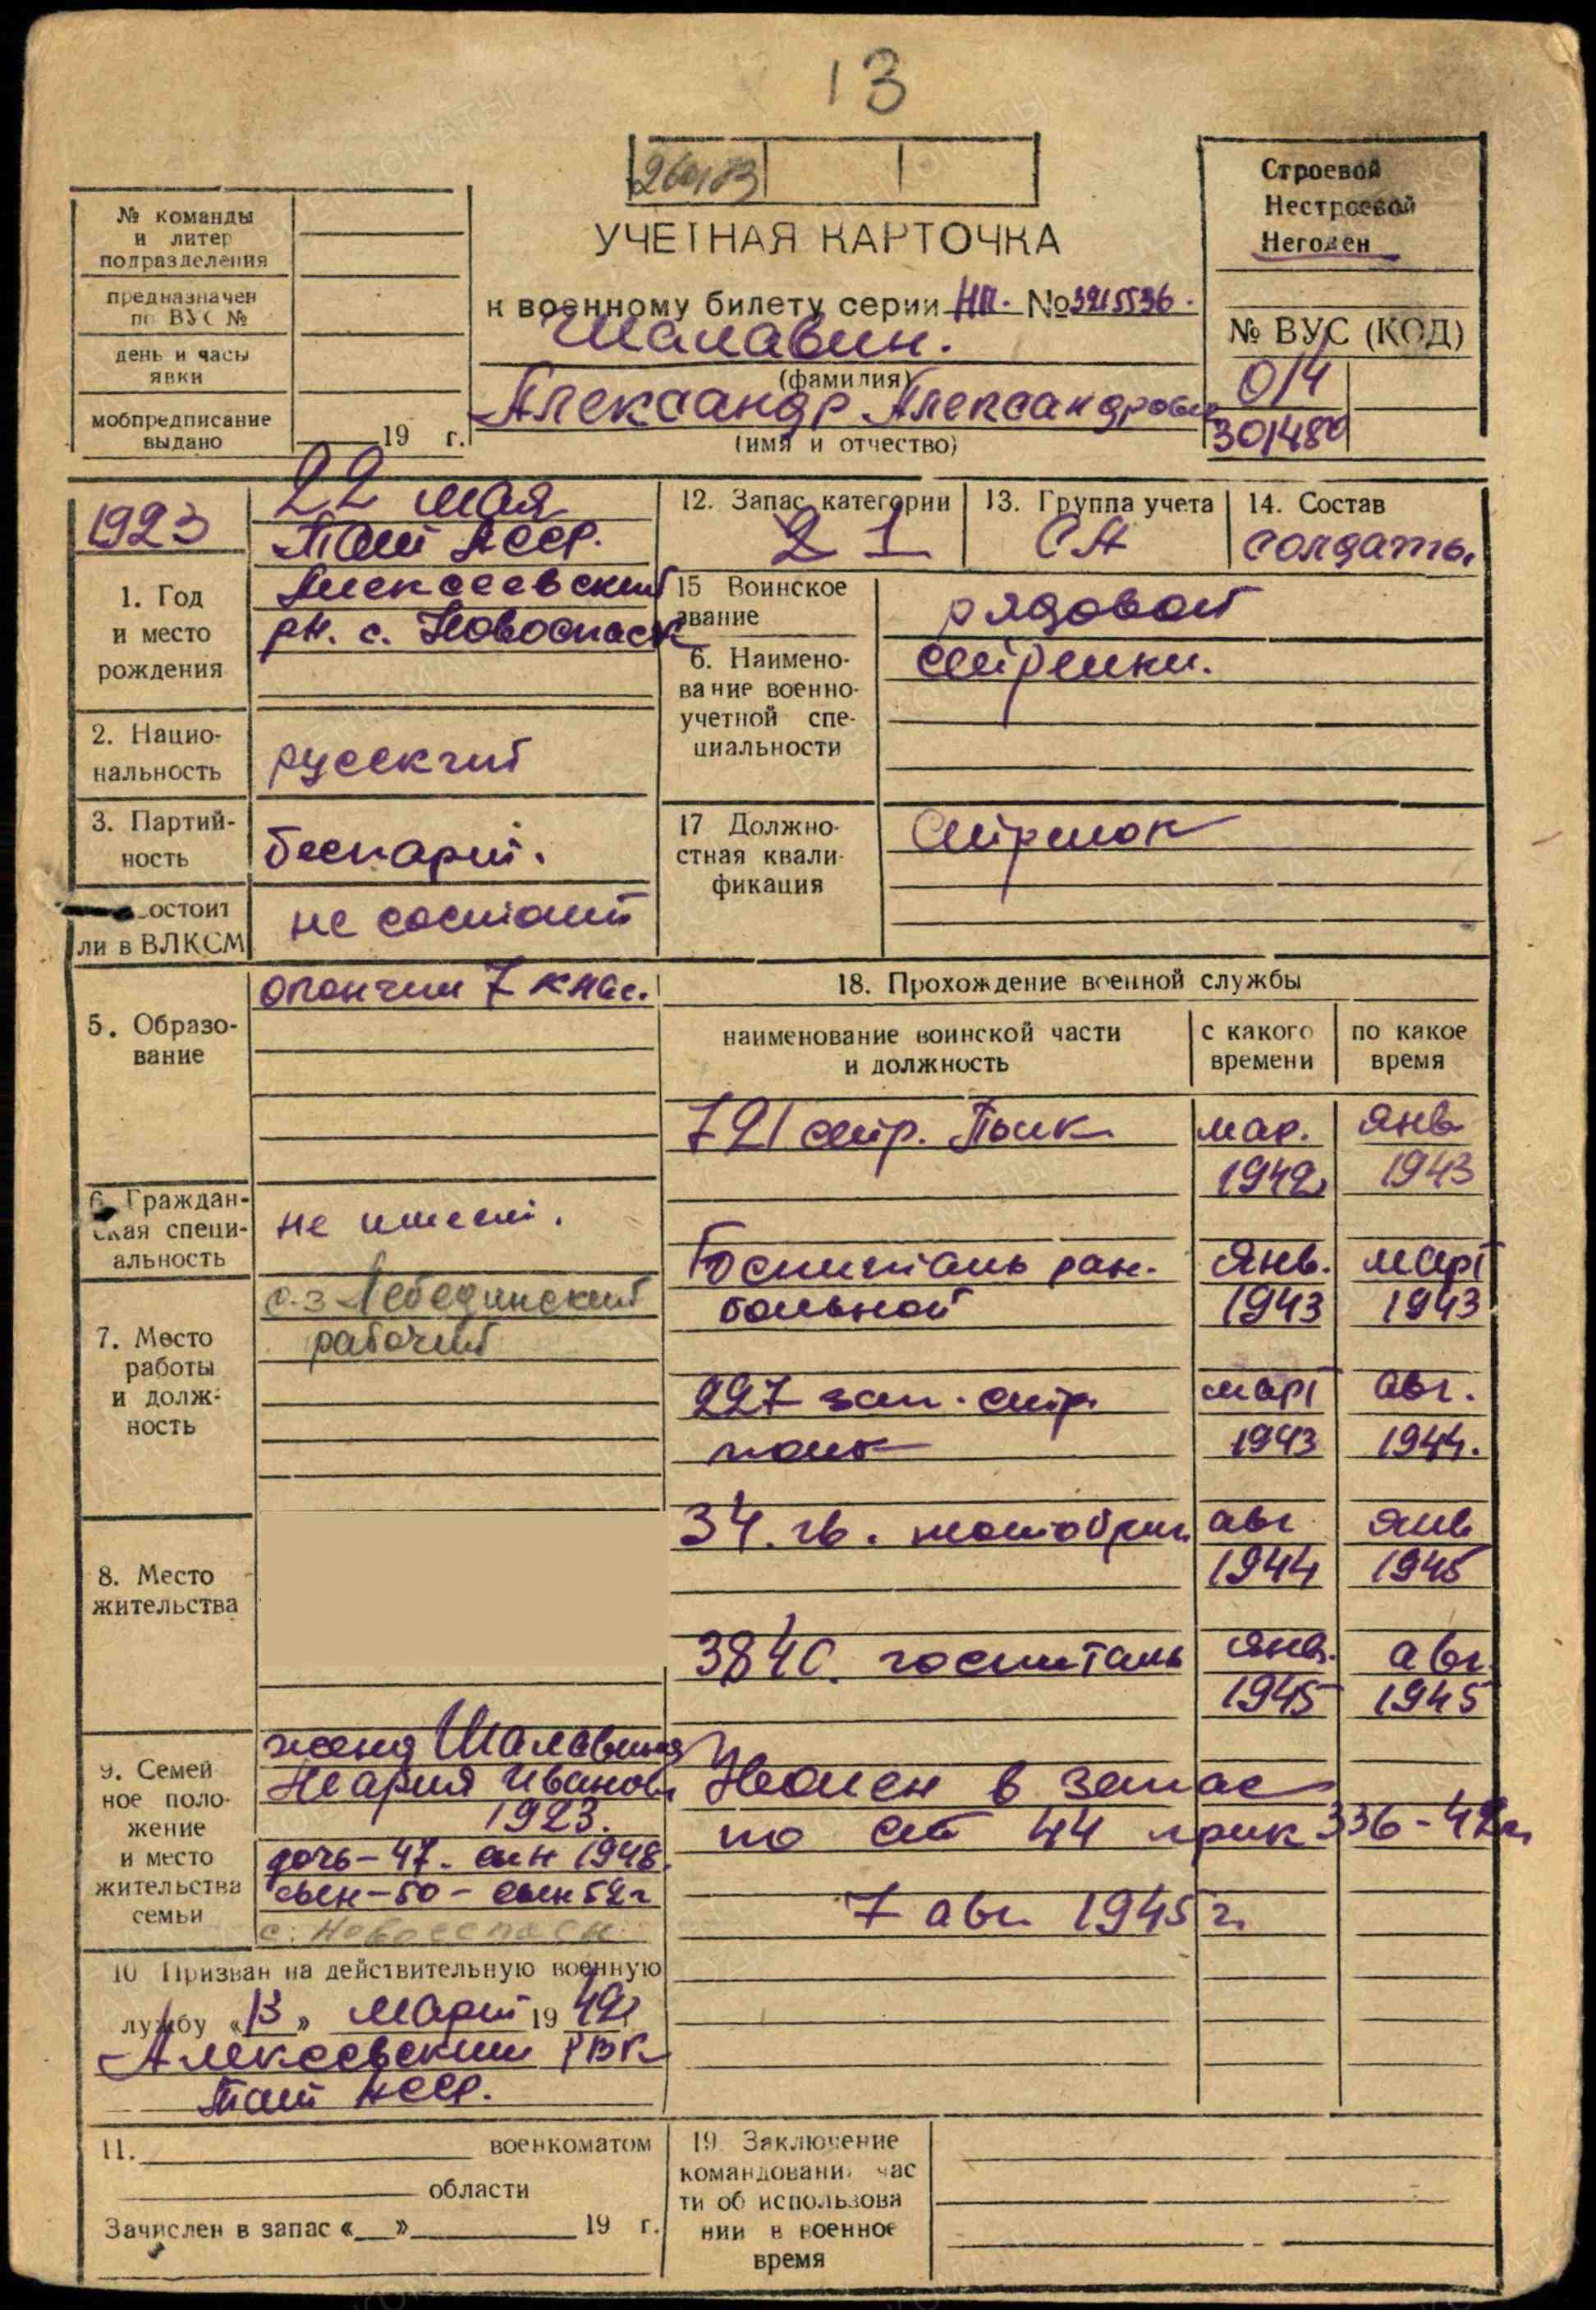 13
260183
№ команды
и литер
подразделения
предназначен
по ВУС №
день и часы
явки
мобпредписание
выдано
19 г.
УЧЕТНАЯ КАРТОЧКА
к военному билету серии НП. № 3215536.
Шалавин.
(фамилия)
Александр Александрович
(имя и отчество)
Строевой
Нестроевой
Негоден
№ ВУС (КОД)
014
301480
1923
22 мая
Тат АССР.
Алексеевский
рн. с. Новоспаск
1. Год
и место
рождения
2. Нацио-
нальность
русский
3. Партий-
ность
беспарт.
состоит
ли в ВЛКСМ
не состоит
5. Образо-
вание
окончил 7 клас.
6. Граждан-
ская специ-
альность
не имеет.
7. Место
работы
и долж-
ность
с-з Лебединский
рабочий
8. Место
жительства
9. Семей
ное поло-
жение
и место
жительства
семьи
жена Шалавина
Мария Иванов
1923.
дочь-47. сын 1948.
сын-50- сын 52 г
с. Новоспаск
10 Призван на действительную военную
лужбу «13» март 19 42
Алексеевским РВК
Тат АССР.
11. военкоматом
области
Зачислен в запас « » 19 г.
12. Запас категории
2 1
13. Группа учета
СА
14. Состав
солдаты
15 Воинское
звание
рядовой
6. Наимено-
вание военно-
учетной спе-
циальности
стрелки.
17 Должно-
стная квали-
фикация
Стрелок
18. Прохождение военной службы
наименование воинской части
и должность
с какого
времени
по какое
время
721 стр. Полк мар. янв
1942 1943
Госпиталь ран. янв. март
больной 1943 1943
227 зап. стр. март авг.
полк 1943 1944.
34. гв. мотобриг авг янв
1944 1945
3840. госпиталь янв. авг.
1945 1945
Уволен в запас
по ст 44 прик 336-42 г.
7 авг. 1945 г.
19. Заключение
командования час
ти об использова
нии в военное
время